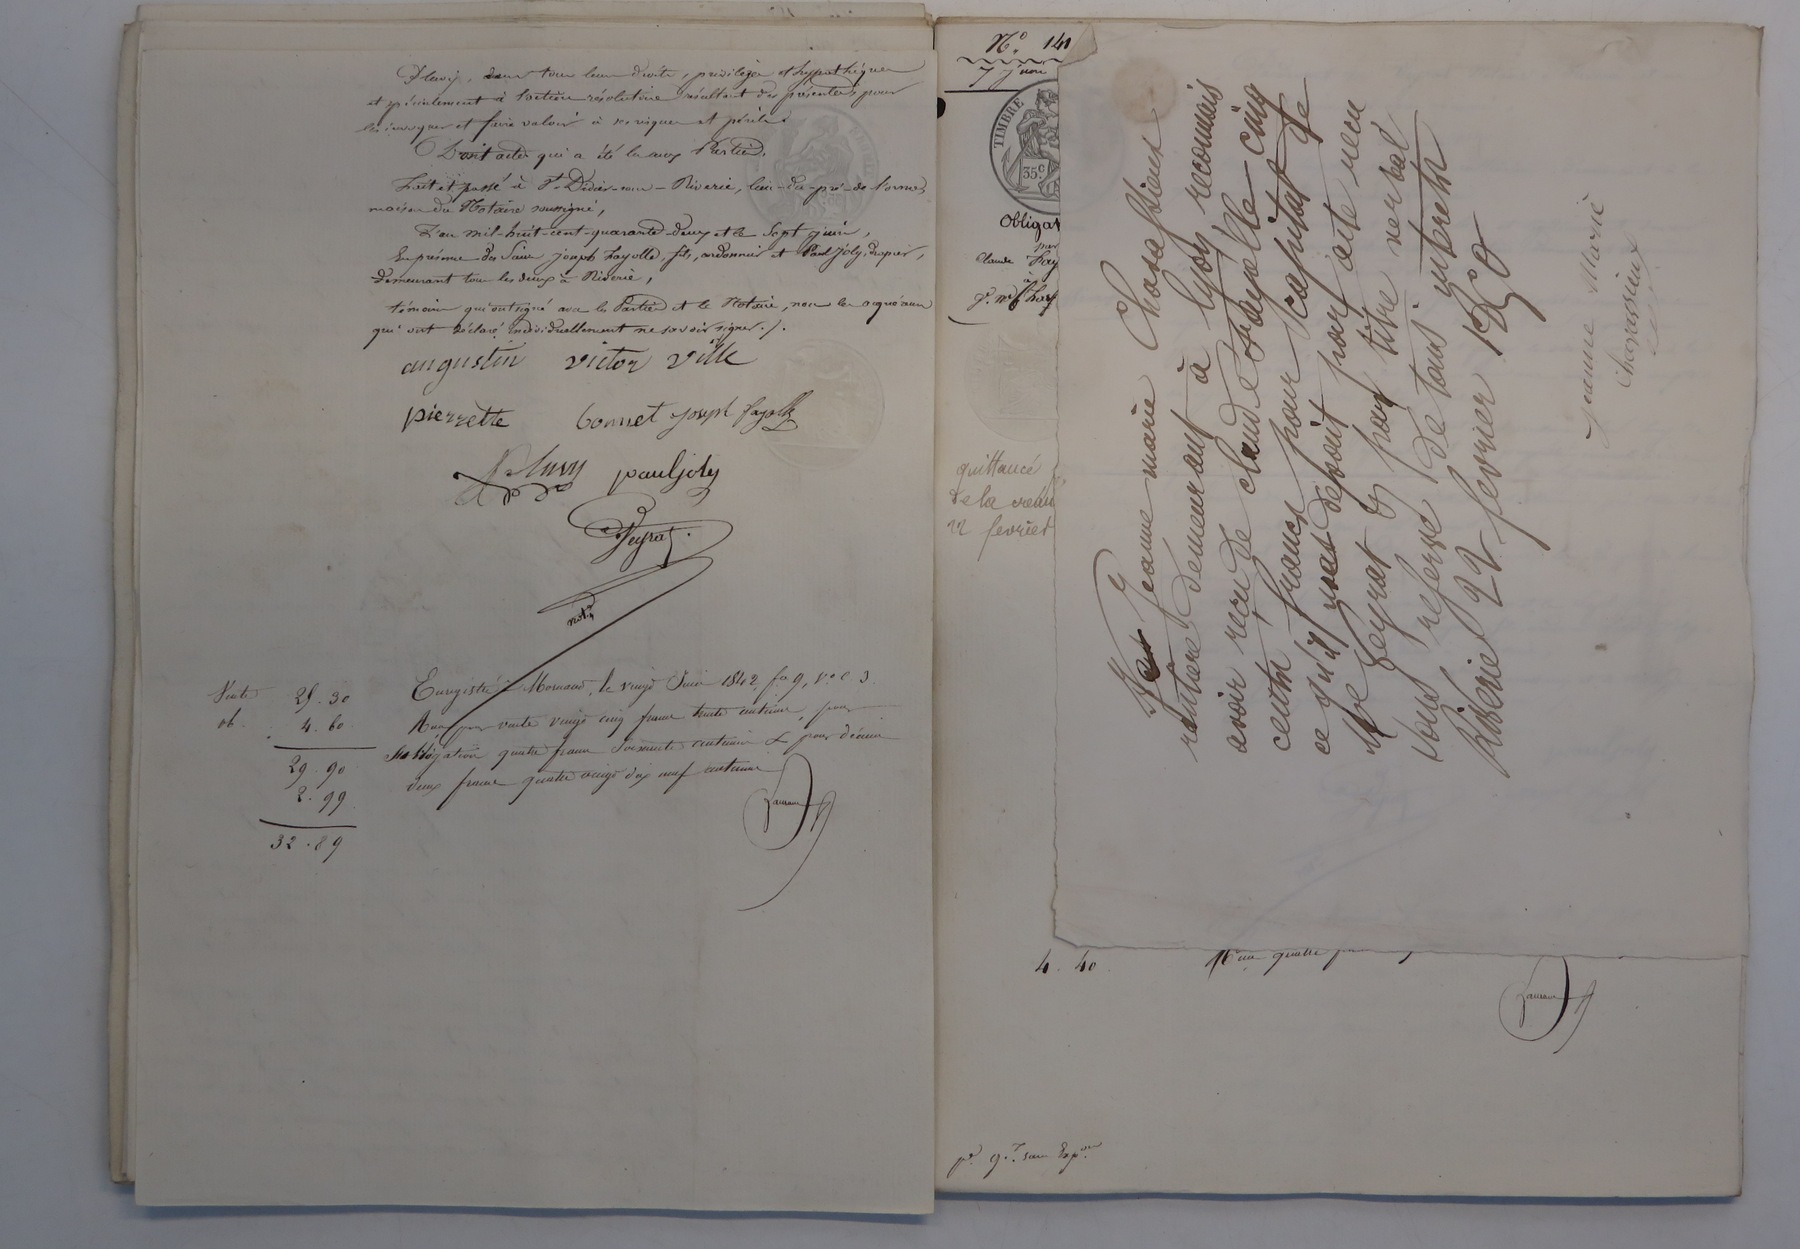 Fleury, dans tous leurs droits, privilèges et hypothèques
et spécialement à l'action résolutoire résultant des présentes, pour
les invoquer et faire valoir à ses risques et périls.
Dont acte, qui a été lu aux Parties,
Fait et passé à St. Didier-sous-Riverie, lieu-du-pré-de l'orme,
maison du Notaire soussigné,
L'an mil-huit-cent-quarante-deux et le Sept juin,
En présence des Sieurs joseph Fayolle, fils, cordonnier et Paul Joly, drapier,
demeurant tous les deux à Riverie,
témoins qui ont signé avec les Parties et le Notaire, non les acquéreurs
qui ont déclaré individuellement ne savoir signer ./.
augustin victor ville
pierrette bonnet joseph fayolle
paul joly
Peyrat
not.
Vente 25.30
ob. 4.60
29.90
2.99
32.89
Enregistré à Mornand, le vingt Juin 1842, fo 9, vo C 3.
Reçu pour vente vingt cinq francs trente centimes, pour
obligation quatre francs soixante centimes & pour décime
deux francs quatre vingt dix neuf centimes
No. 141
7 juin
TIMBRE
35.c
Obligat
par
Claude Fay
à
quittancé
de la créan
22 fevrier
Jeanne marie Chavassieux
rentiare demeurant à lyon reconnais
avoir recu de claude fayolle cinq
cents francs pour scapital de
ce qu'il mes devait par acte recu
Me Peyrat
sous reserve de tous interets
Riverie 22 fevrier 1850
jeanne Marie
Chavassieux
4.40